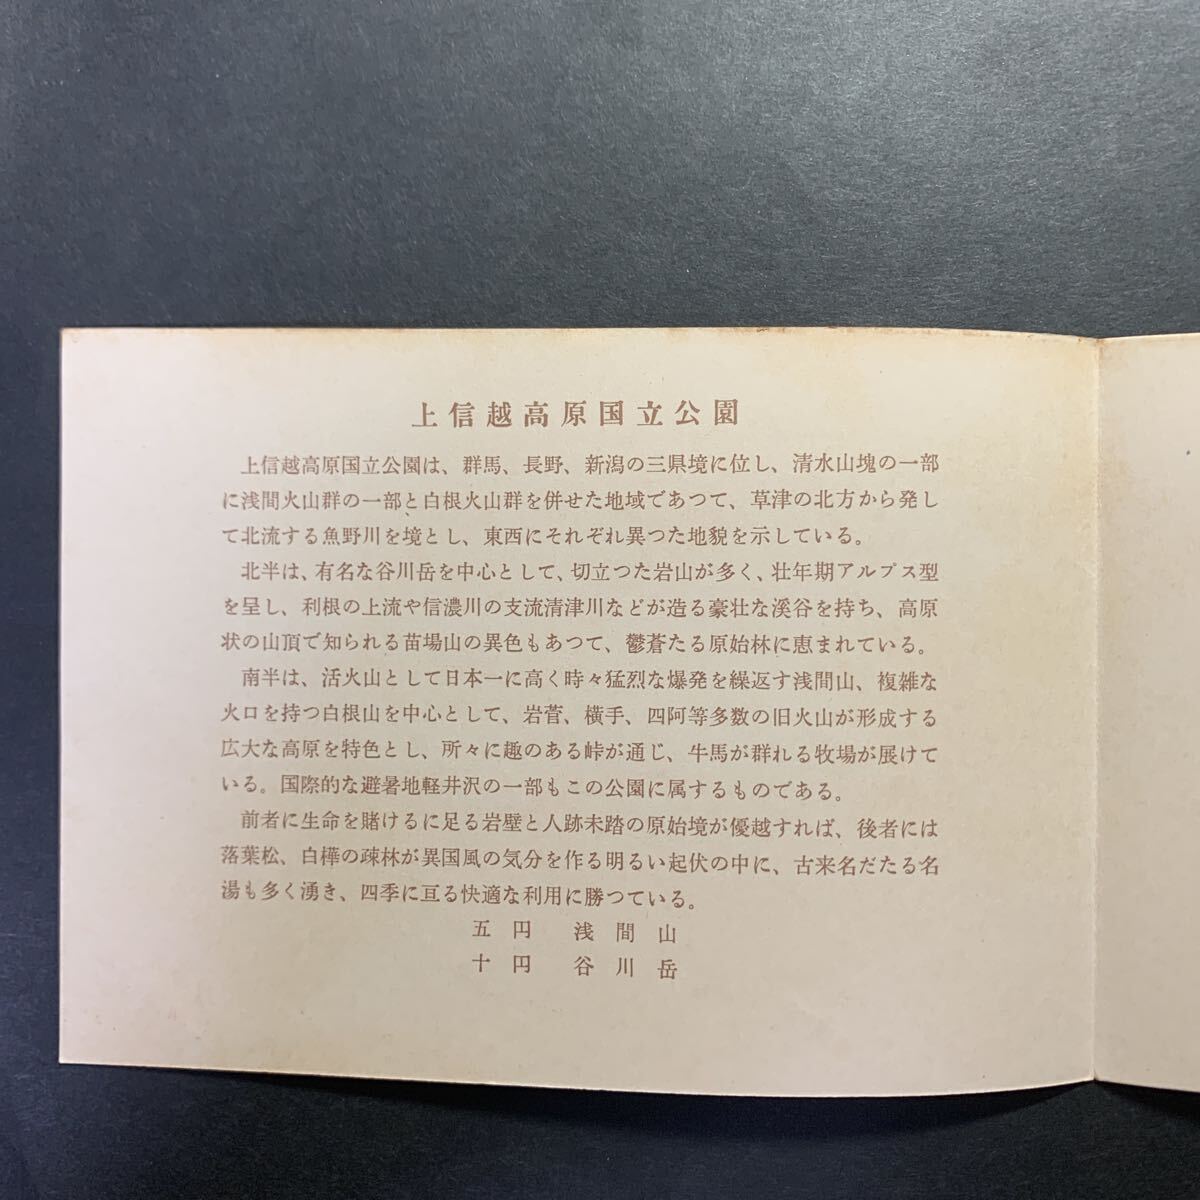 上信越高原国立公園
上信越高原国立公園は、群馬、長野、新潟の三県境に位し、清水山塊の一部
に浅間火山群の一部と白根火山群を併せた地域であつて、草津の北方から発し
て北流する魚野川を境とし、東西にそれぞれ異つた地貌を示している。
北半は、有名な谷川岳を中心として、切立つた岩山が多く、壮年期アルプス型
を呈し、利根の上流や信濃川の支流清津川などが造る豪壮な溪谷を持ち、高原
状の山頂で知られる苗場山の異色もあつて、鬱蒼たる原始林に恵まれている。
南半は、活火山として日本一に高く時々猛烈な爆発を繰返す浅間山、複雑な
火口を持つ白根山を中心として、岩菅、横手、四阿等多数の旧火山が形成する
広大な高原を特色とし、所々に趣のある峠が通じ、牛馬が群れる牧場が展けて
いる。国際的な避暑地軽井沢の一部もこの公園に属するものである。
前者に生命を賭けるに足る岩壁と人跡未踏の原始境が優越すれば、後者には
落葉松、白樺の疎林が異国風の気分を作る明るい起伏の中に、古来名だたる名
湯も多く湧き、四季に亘る快適な利用に勝つている。
五円 浅間山
十円 谷川岳